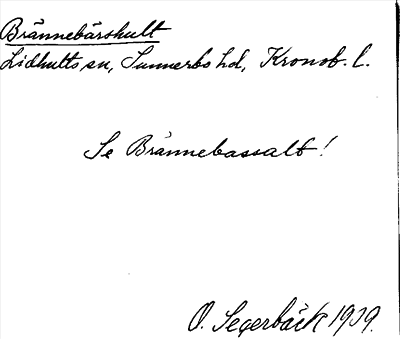 Brännebärshult
Lidhults sn, Sunnerbo hd, Kronob. l.
Se Brännebassalt!
O. Segerbäck 1939.